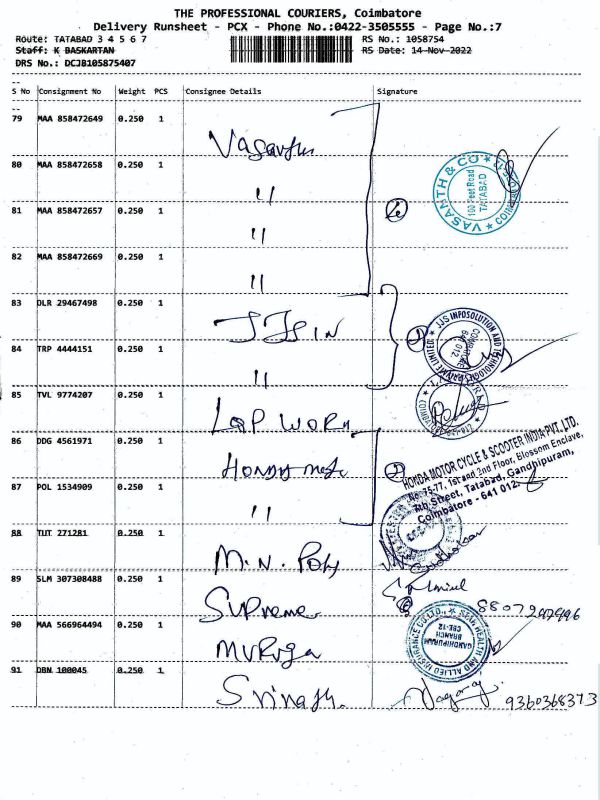 THE PROFESSIONAL COURIERS, Coimbatore
Delivery Runsheet - PCX - Phone No.:0422-3505555 - Page No.:7
Route: TATABAD 3 4 5 6 7 RS No.: 1058754
Staff: K BASKARTAN RS Date: 14-Nov-2022
DRS No.: DCJB105875407
S No Consignment No Weight PCS Consignee Details Signature
79 MAA 858472649 0.250 1
80 MAA 858472658 0.250 1 "
81 MAA 858472657 0.250 1 "
82 MAA 858472669 0.250 1 "
VASANTH & CO
100 Feet Road
TATABAD
83 DLR 29467498 0.250 1
84 TRP 4444151 0.250 1 "
JJS INFOSOLUTION AND TECHNOLOGIES PRIVATE LIMITED
85 TVL 9774207 0.250 1 LAP WORLD
86 DDG 4561971 0.250 1 HONDA
87 POL 1534909 0.250 1 "
HONDA MOTOR CYCLE & SCOOTER INDIA PVT. LTD.
No. 75-77, 1st and 2nd Floor, Blossom Enclave,
Street, Tatabad, Gandhipuram,
Coimbatore - 641 012.
88 TUT 271281 0.250 1 M.N. Poly
89 SLM 307308488 0.250 1 Supreme
90 MAA 566964494 0.250 1 MURUGA
STAR HEALTH AND ALLIED INSURANCE CO LTD.,
GANDHIPURAM
BRANCH
CBE-12
91 DBN 100045 0.250 1 Srinath.
9360368373